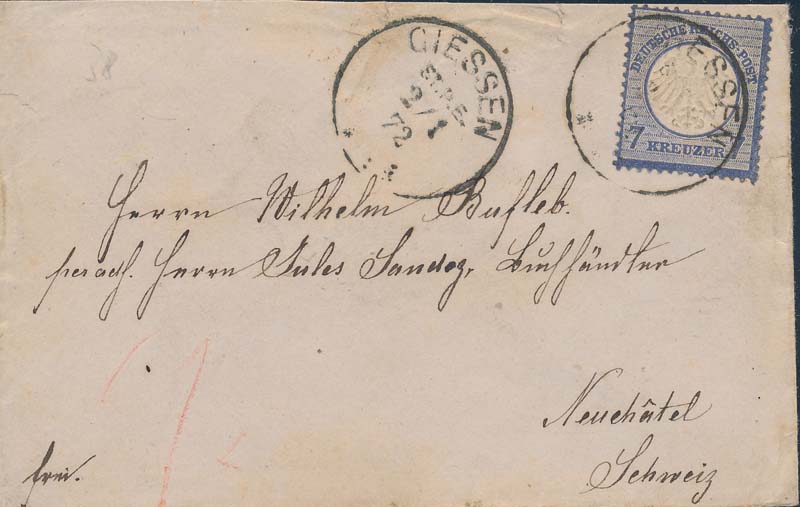 58
GIESSEN
3/1
72
ESSEN
DEUTSCHE REICHS-POST
7 7
KREUZER
Herrn Wilhelm Bufleb.
per adr. Herrn Jules Sandoz, Buchhändler
Neuchâtel
Schweiz
frei.